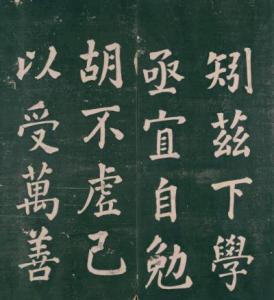 矧茲下學
亟宜自勉
胡不虗己
以受萬善